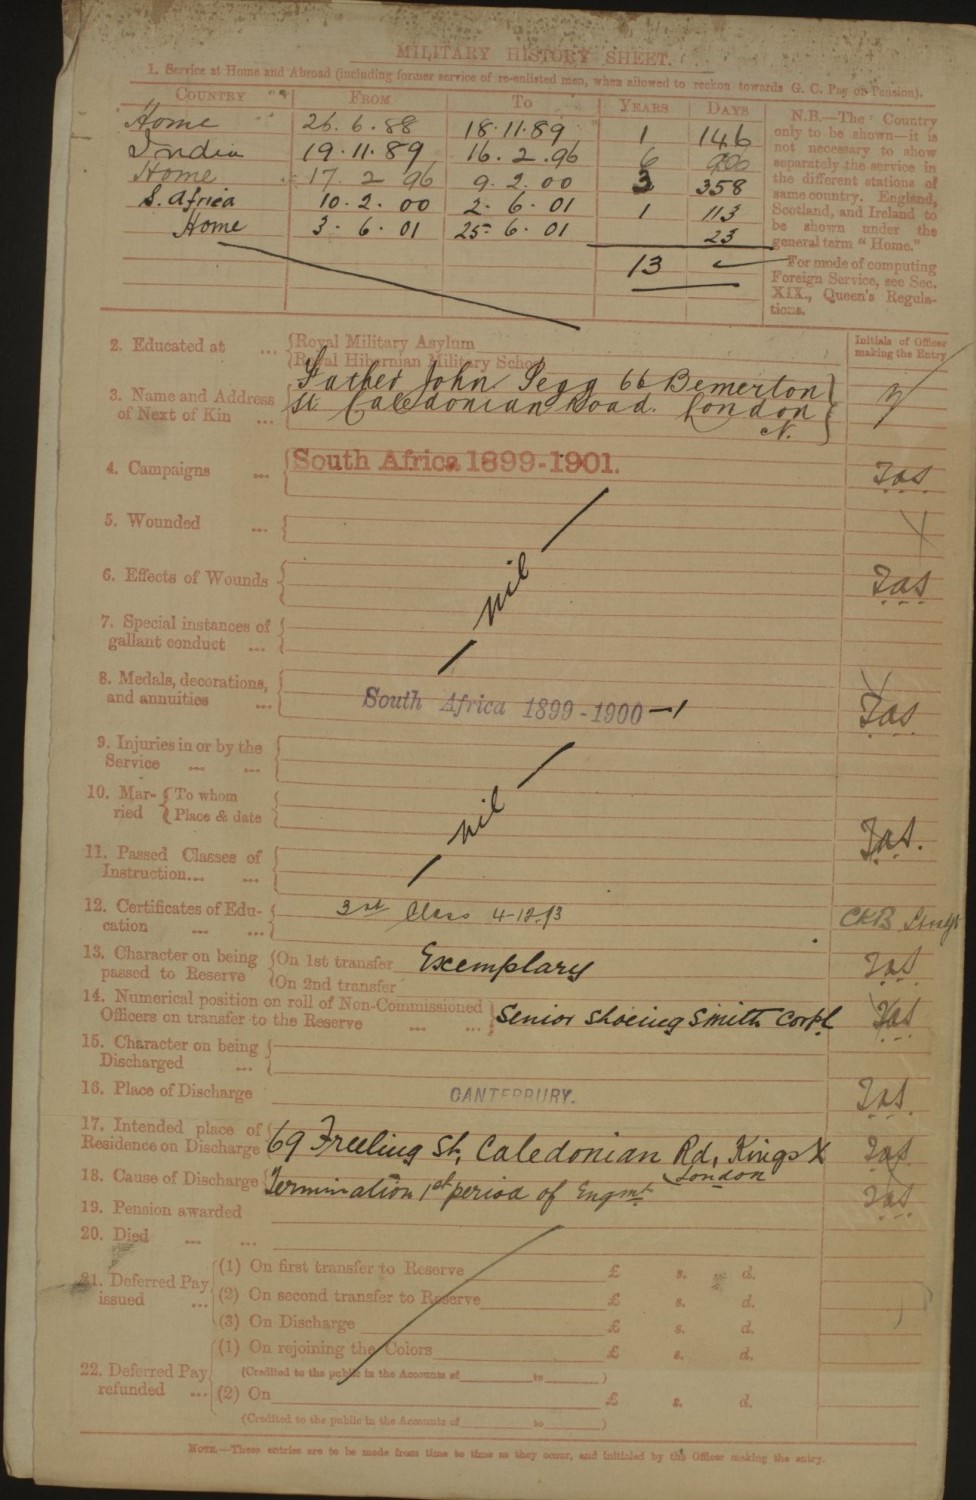 MILITARY HISTORY SHEET.
1. Service at Home and Abroad (including former service of re-enlisted men, when allowed to reckon towards G. C. Pay or Pension).
COUNTRY FROM TO YEARS DAYS
Home 26. 6. 88 18.11.89 1 146
India 19.11.89 16. 2. 96 6
Home 17. 2 96 9. 2. 00 3 358
S. Africa 10. 2. 00 2. 6. 01 1 113
Home 3. 6. 01 25 6. 01 23
13
N.B.—The Country
only to be shown—it is
not necessary to show
separately the service in
the different stations of
same country. England,
Scotland, and Ireland to
be shown under the
general term "Home."
For mode of computing
Foreign Service, see Sec.
XIX., Queen's Regula-
tions.
Initials of Officer
making the Entry
2. Educated at ... Royal Military Asylum
Royal Hibernian Military School
3. Name and Address Father John Pegg 66 Bemerton
of Next of Kin ... St Caledonian Road. London
N.
4. Campaigns ... South Africa 1899-1901. JaS
5. Wounded ...
6. Effects of Wounds JaS
nil
7. Special instances of
gallant conduct ...
8. Medals, decorations,
and annuities ... South Africa 1899-1900 -1 JaS
9. Injuries in or by the
Service ... ...
10. Mar- To whom
ried Place & date
nil JaS.
11. Passed Classes of
Instruction... ...
12. Certificates of Edu- 3rd Class 4-12-93 CKB
cation ... ...
13. Character on being On 1st transfer Exemplary JaS
passed to Reserve On 2nd transfer
14. Numerical position on roll of Non-Commissioned
Officers on transfer to the Reserve ... ... Senior Shoeing Smith Corpl JaS
15. Character on being
Discharged ...
16. Place of Discharge CANTERBURY. JaS.
17. Intended place of
Residence on Discharge 69 Freeling St, Caledonian Rd, Kings X JaS
London
18. Cause of Discharge Termination 1st period of Engmt JaS
19. Pension awarded
20. Died ... ...
21. Deferred Pay issued ...
(1) On first transfer to Reserve £ s. d.
(2) On second transfer to Reserve £ s. d.
(3) On Discharge £ s. d.
22. Deferred Pay refunded ...
(1) On rejoining the Colors £ s. d.
(Credited to the public in the Accounts of to )
(2) On £ s. d.
(Credited to the public in the Accounts of to )
NOTE.—These entries are to be made from time to time as they occur, and initialed by the Officer making the entry.